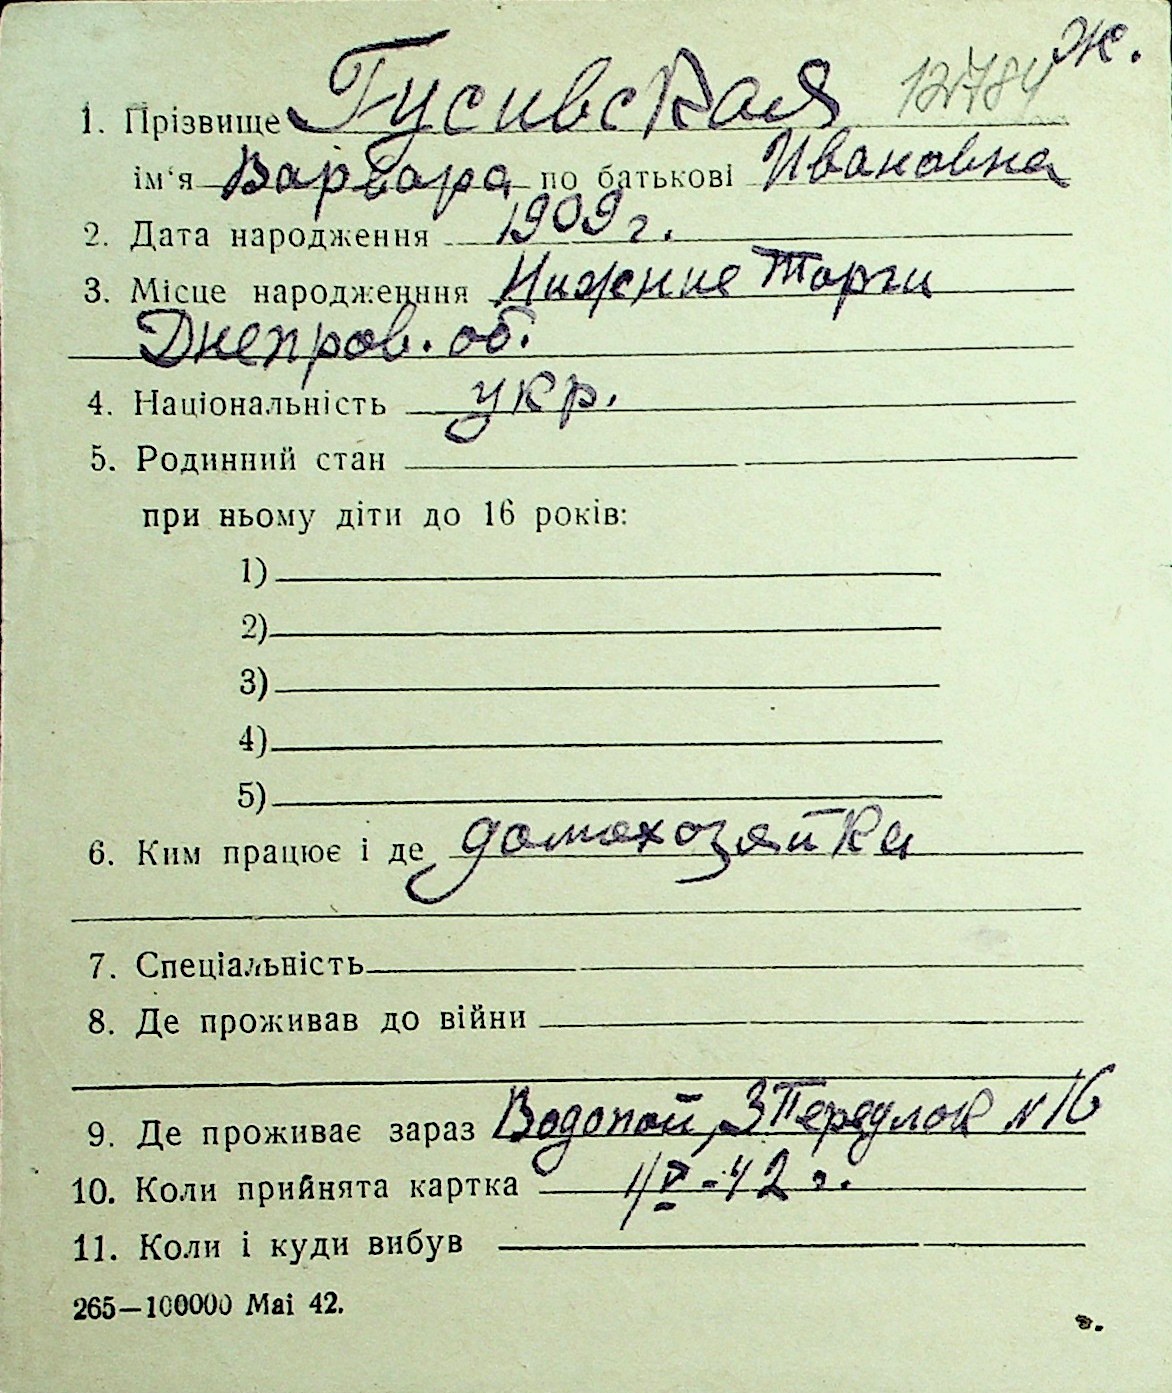 ж.
12784
1. Прізвище Гусивская
ім'я Варвара по батькові Ивановна
2. Дата народження 1909 г.
3. Місце народженння Нижние Торги
Днепров. об.
4. Національність укр.
5. Родинний стан
при ньому діти до 16 років:
1)
2)
3)
4)
5)
6. Ким працює і де домохозяйка
7. Спеціальність
8. Де проживав до війни
9. Де проживає зараз Водопой, 3 Переулок N 16
10. Коли прийнята картка V-42 г.
11. Коли і куди вибув
265—100000 Mai 42.